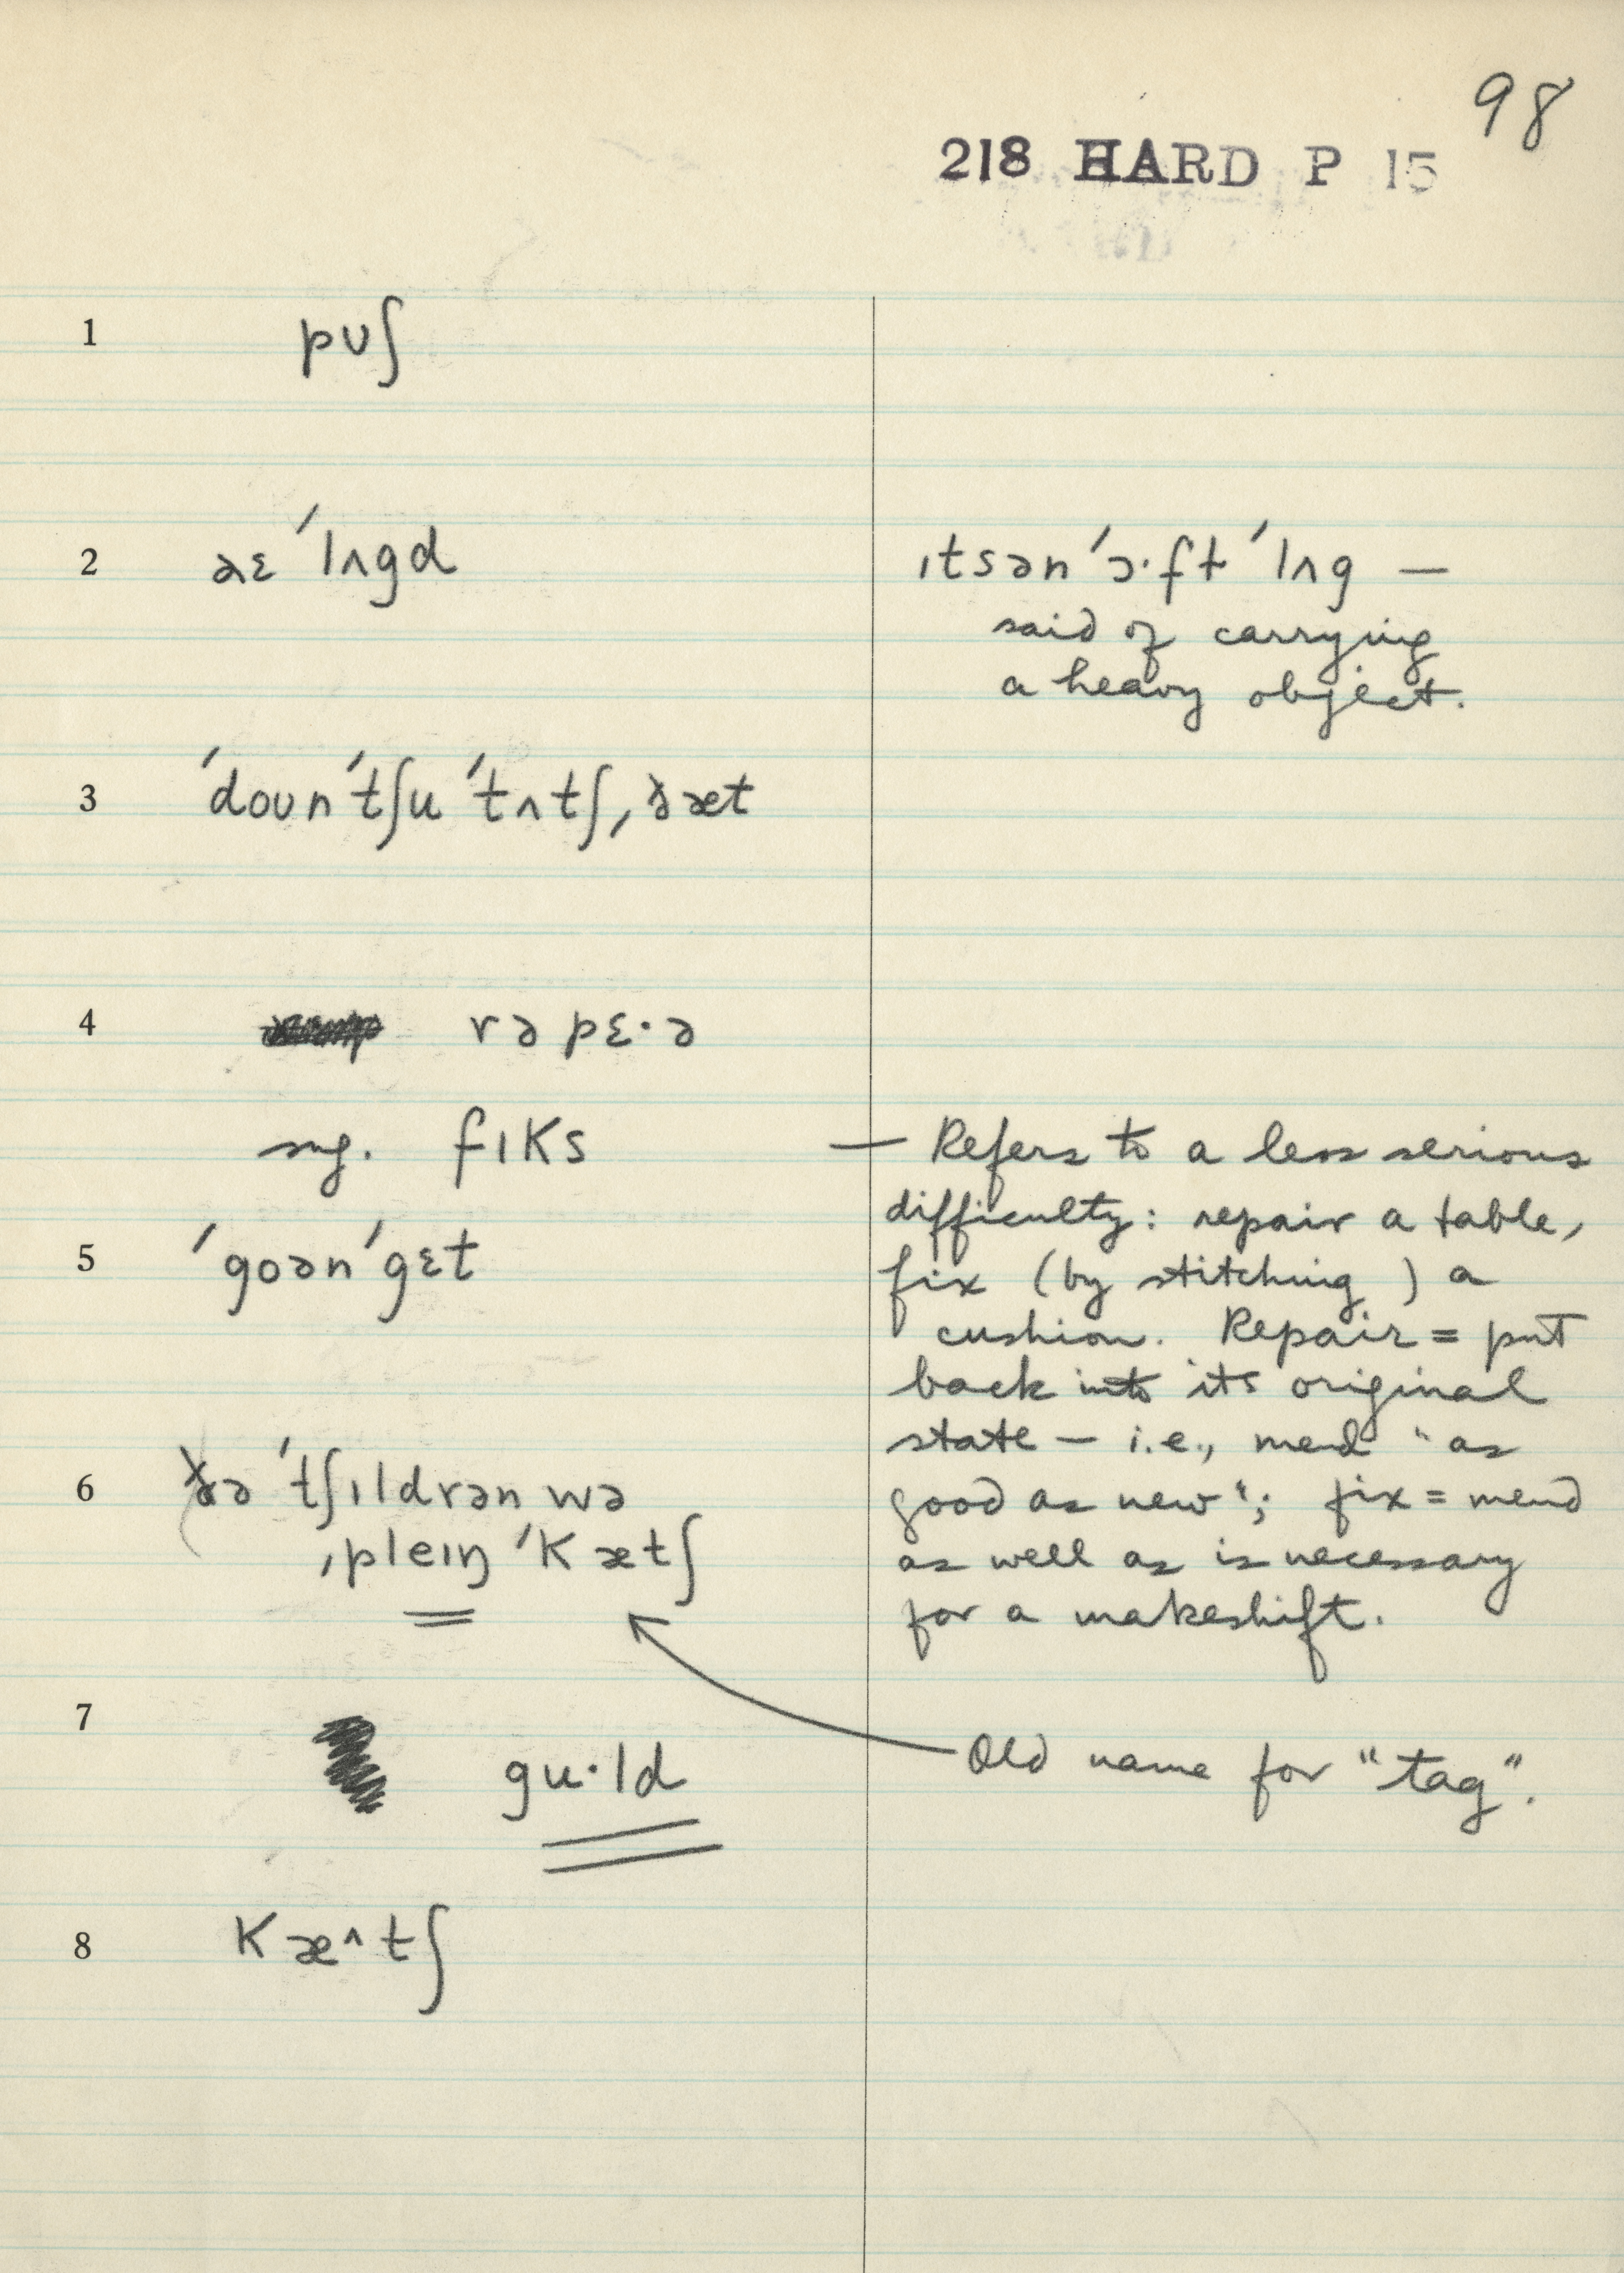 98
218 HARD P 15
1 pʊʃ
2 aɛ ˈlʌgd
ɪtsən ˈɔ·ft ˈlʌg —
said of carrying
a heavy object.
3 ˈdoʊnˈtʃu ˈtʌtʃ ˌðæt
4 rəpɛ·ə
sug. fɪks
5 ˈgoənˈgɛt
— Refers to a less serious
difficulty: repair a table,
fix (by stitching) a
cushion. Repair = put
back into its original
state — i.e., mend "as
good as new"; fix = mend
as well as is necessary
for a makeshift.
6 ðə ˈtʃɪldrən wə
ˌpleɪŋ ˈkætʃ
7 gu·ld
Old name for "tag".
8 kæ^tʃ